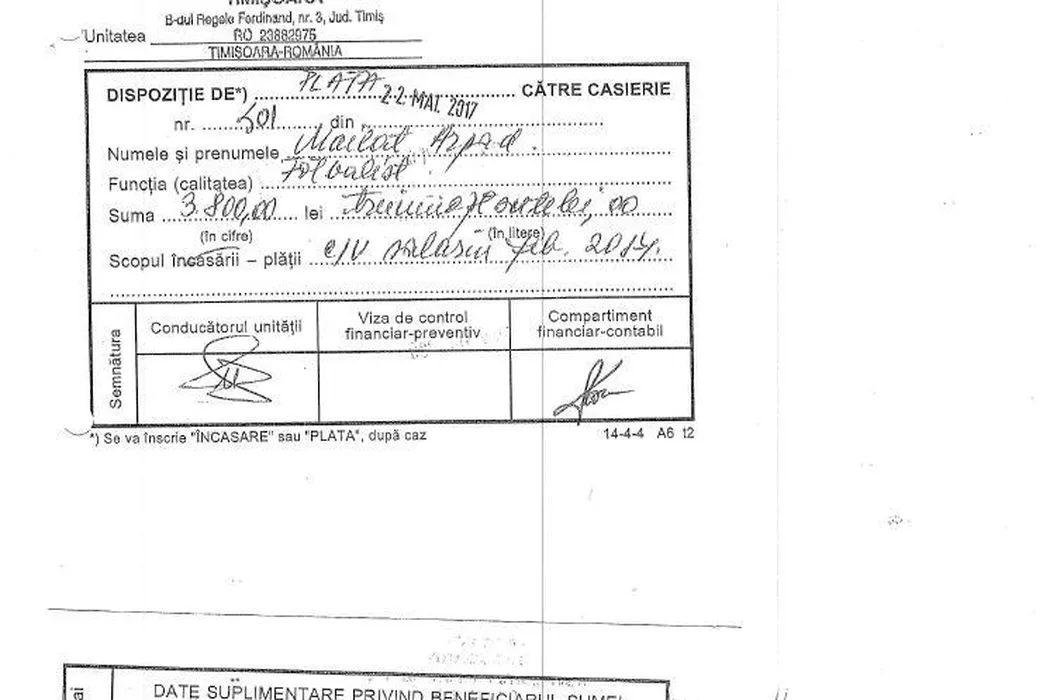 TIMIȘOARA
B-dul Regele Ferdinand, nr. 3, Jud. Timiș
Unitatea RO 23882975
TIMIȘOARA-ROMÂNIA
DISPOZIȚIE DE*) PLATA CĂTRE CASIERIE
nr. 501 din 22 MAI. 2017
Numele și prenumele Mailat Arpad.
Funcția (calitatea) Fotbalist.
Suma 3.800,00 lei lei, 00
(în cifre) (în litere)
Scopul încasării – plății c/v salariu feb. 2017.
Semnătura
Conducătorul unității
Viza de control financiar-preventiv
Compartiment financiar-contabil
*) Se va înscrie "ÎNCASARE" sau "PLATA", după caz 14-4-4 A6 t2
DATE SUPLIMENTARE PRIVIND BENEFICIARUL SUMEI